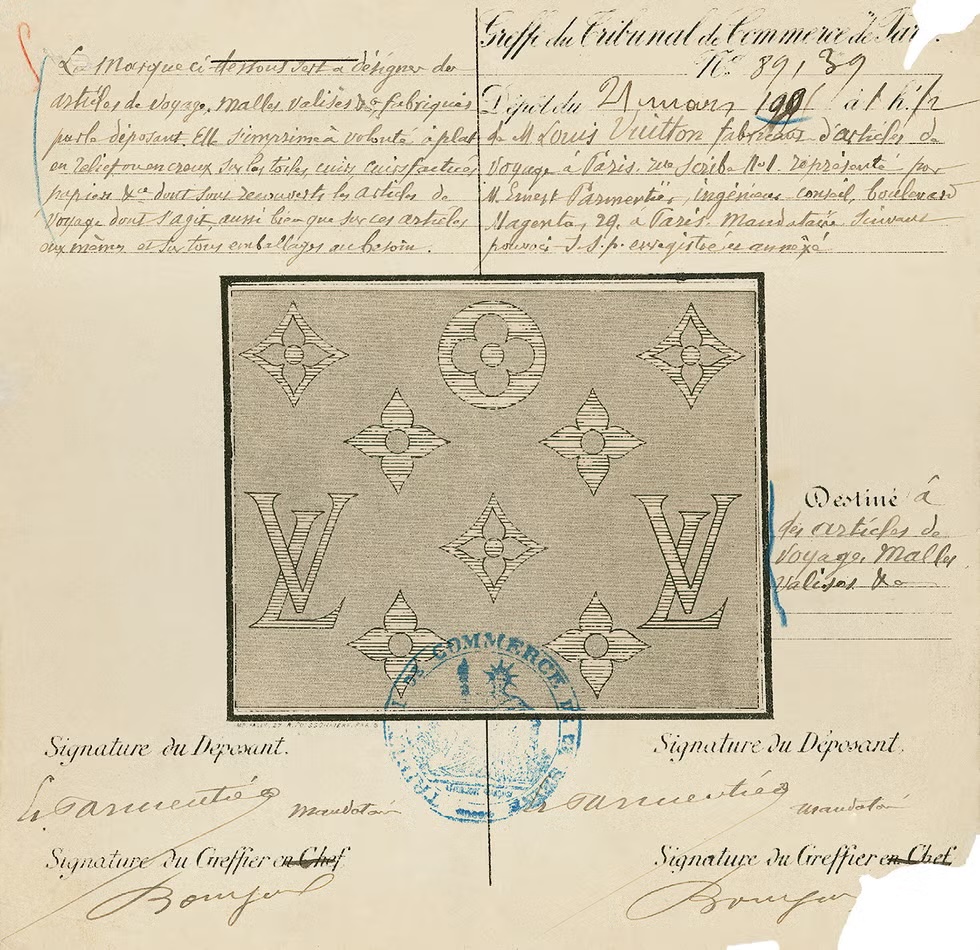 La Marque ci-dessous sert à désigner des
articles de voyage, malles, valises &ca fabriqués
par le déposant. Elle s'imprime à volonté à plat
en relief ou en creux sur les toiles, cuirs, cuirs factices
papiers &ca dont sont recouverts les articles de
Voyage dont s'agit, aussi bien que sur ces articles
eux mêmes et sur tous emballages au besoin.
Greffe du Tribunal de Commerce de Par
No 89,139
Dépôt du 21 mars à 1 h. 1/2
de M Louis Vuitton fabricant d'articles de
Voyage à Paris, rue Scribe No 1. représenté par
M. Ernest Parmentier, ingénieur conseil, boulevard
Magenta, 29. à Paris. Mandataire suivant
pouvoir s.s.p. enregistré et annexé
LV LV
Destiné à
des articles de
Voyage, Malles
Valises &a
COMMERCE DE LA SEINE
Signature du Déposant.
E. Parmentier mandataire
Signature du Greffier en Chef
Signature du Déposant.
E. Parmentier mandataire
Signature du Greffier en Chef